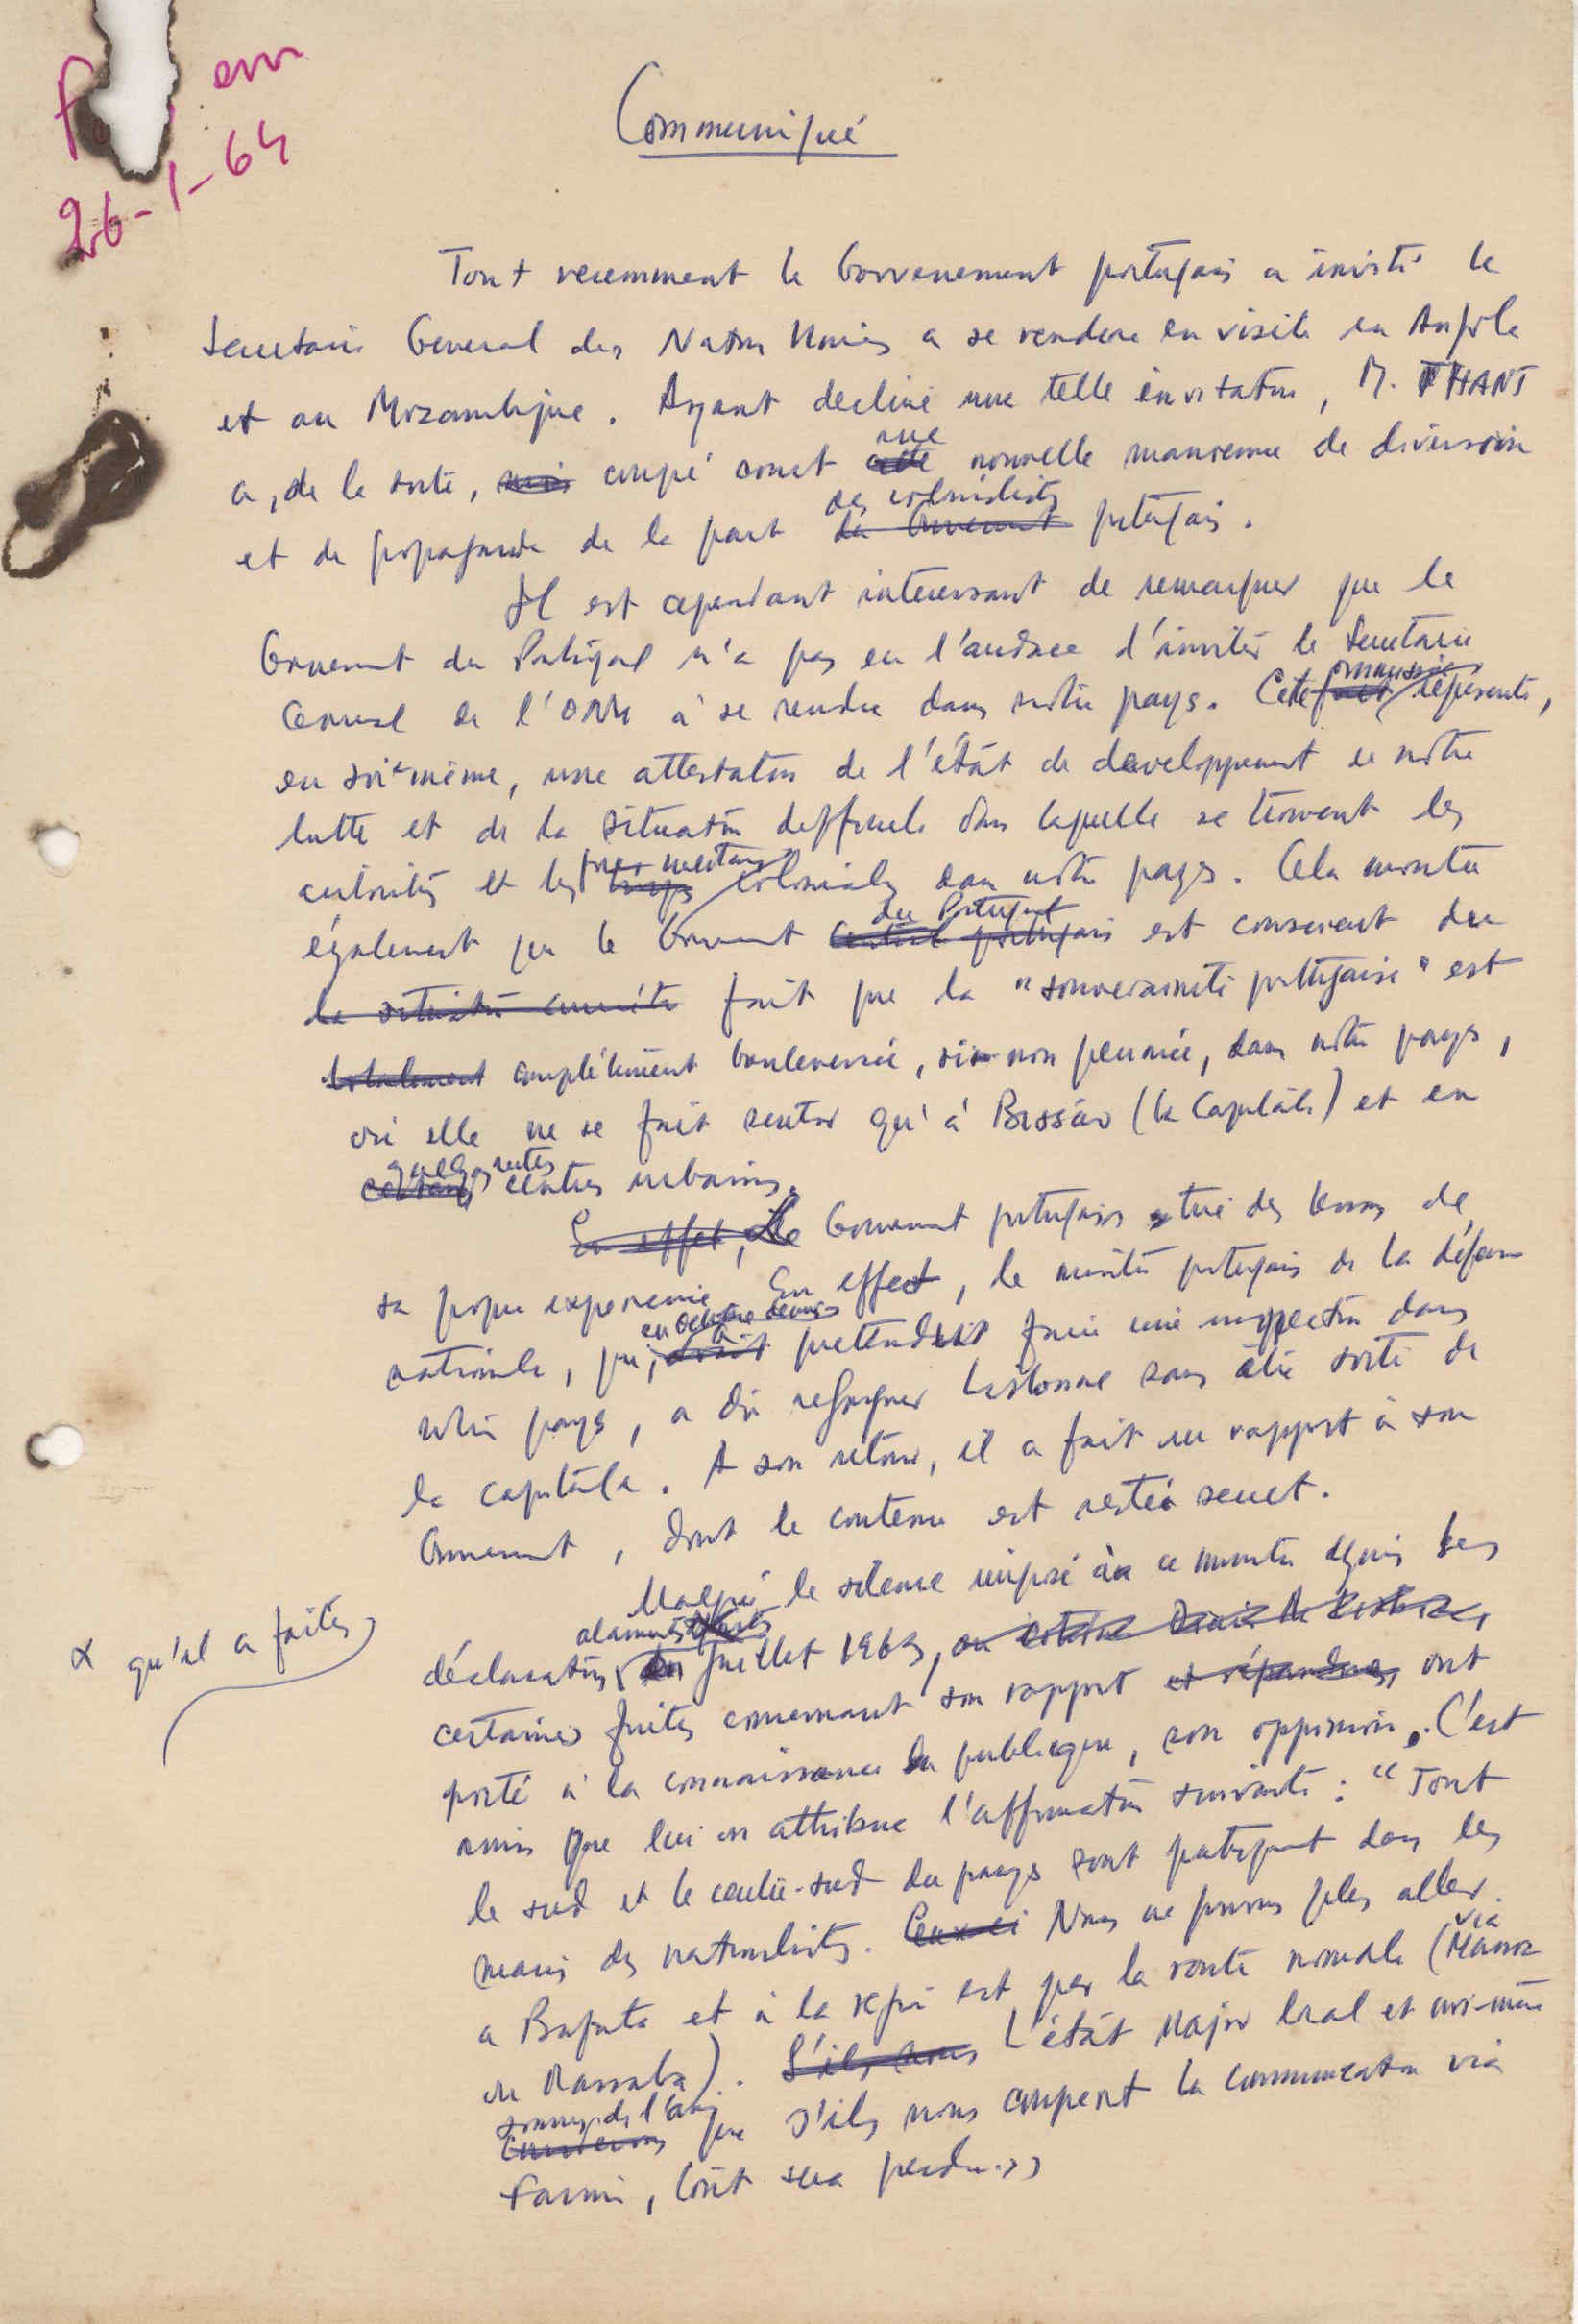 em
26-1-64
Communiqué
Tout recemment le Gouvenement portugais a invité le
Secretaire General des Nations Unies a se rendre en visite en Angola
et au Mozambique. Ayant decliné une telle invitation, M. THANT
a, de la sorte, coupé court une nouvelle manoeuvre de diversion
et de propagande de la part des colonialistes portugais.
Il est cependant interessant de remarquer que le
Gouvernent du Portugal n'a pas eu l'audace d'inviter le Secretaire
General de l'ONU à se rendre dans notre pays. Cette ommission représente,
en soi-même, une attestation de l'état de developpement de notre
lutte et de la situation difficile dans laquelle se trouvent les
autorités et les forces militaires coloniales dans notre pays. Cela montre
également que le Gouvernent du Portugal est conscient du
fait que la "souveraineté portugaise" est
complètement bouleversée, sinon périmée, dans notre pays,
où elle ne se fait sentir qu'à Bissão (la Capitale) et en
quelques centres urbains.
Le Gouvernent portugais a tiré des leçons de
sa propre experience. En effect, le ministre portugais de la défense
nationale, qui, en Octobre dernier a pretendu faire une inspection dans
notre pays, a dû regagner Lisbonne sans être sorti de
la capitale. A son retour, il a fait un rapport à son
Gouvernent, dont le contenu est resté secret.
Malgré le silence imposé à ce ministre depuis les
déclarations alarmantes
x qu'il a faites
Juillet 1963,
certaines fuites concernant son rapport ont
porté à la connaissance du publique, son oppinion. C'est
ainsi que lui on attribue l'affirmation suivante: "Tout
le sud et le centre-sud du pays sont pratiquent dans les
mains des nationalistes. Nous ne pouvons plus aller
a Bafata et à la region est par la route normale (via Mansoa
ou Mansaba). L'état Major local et moi-même
sommes de l'avis que s'ils nous coupent la communication via
Farim, tout sera perdu.»